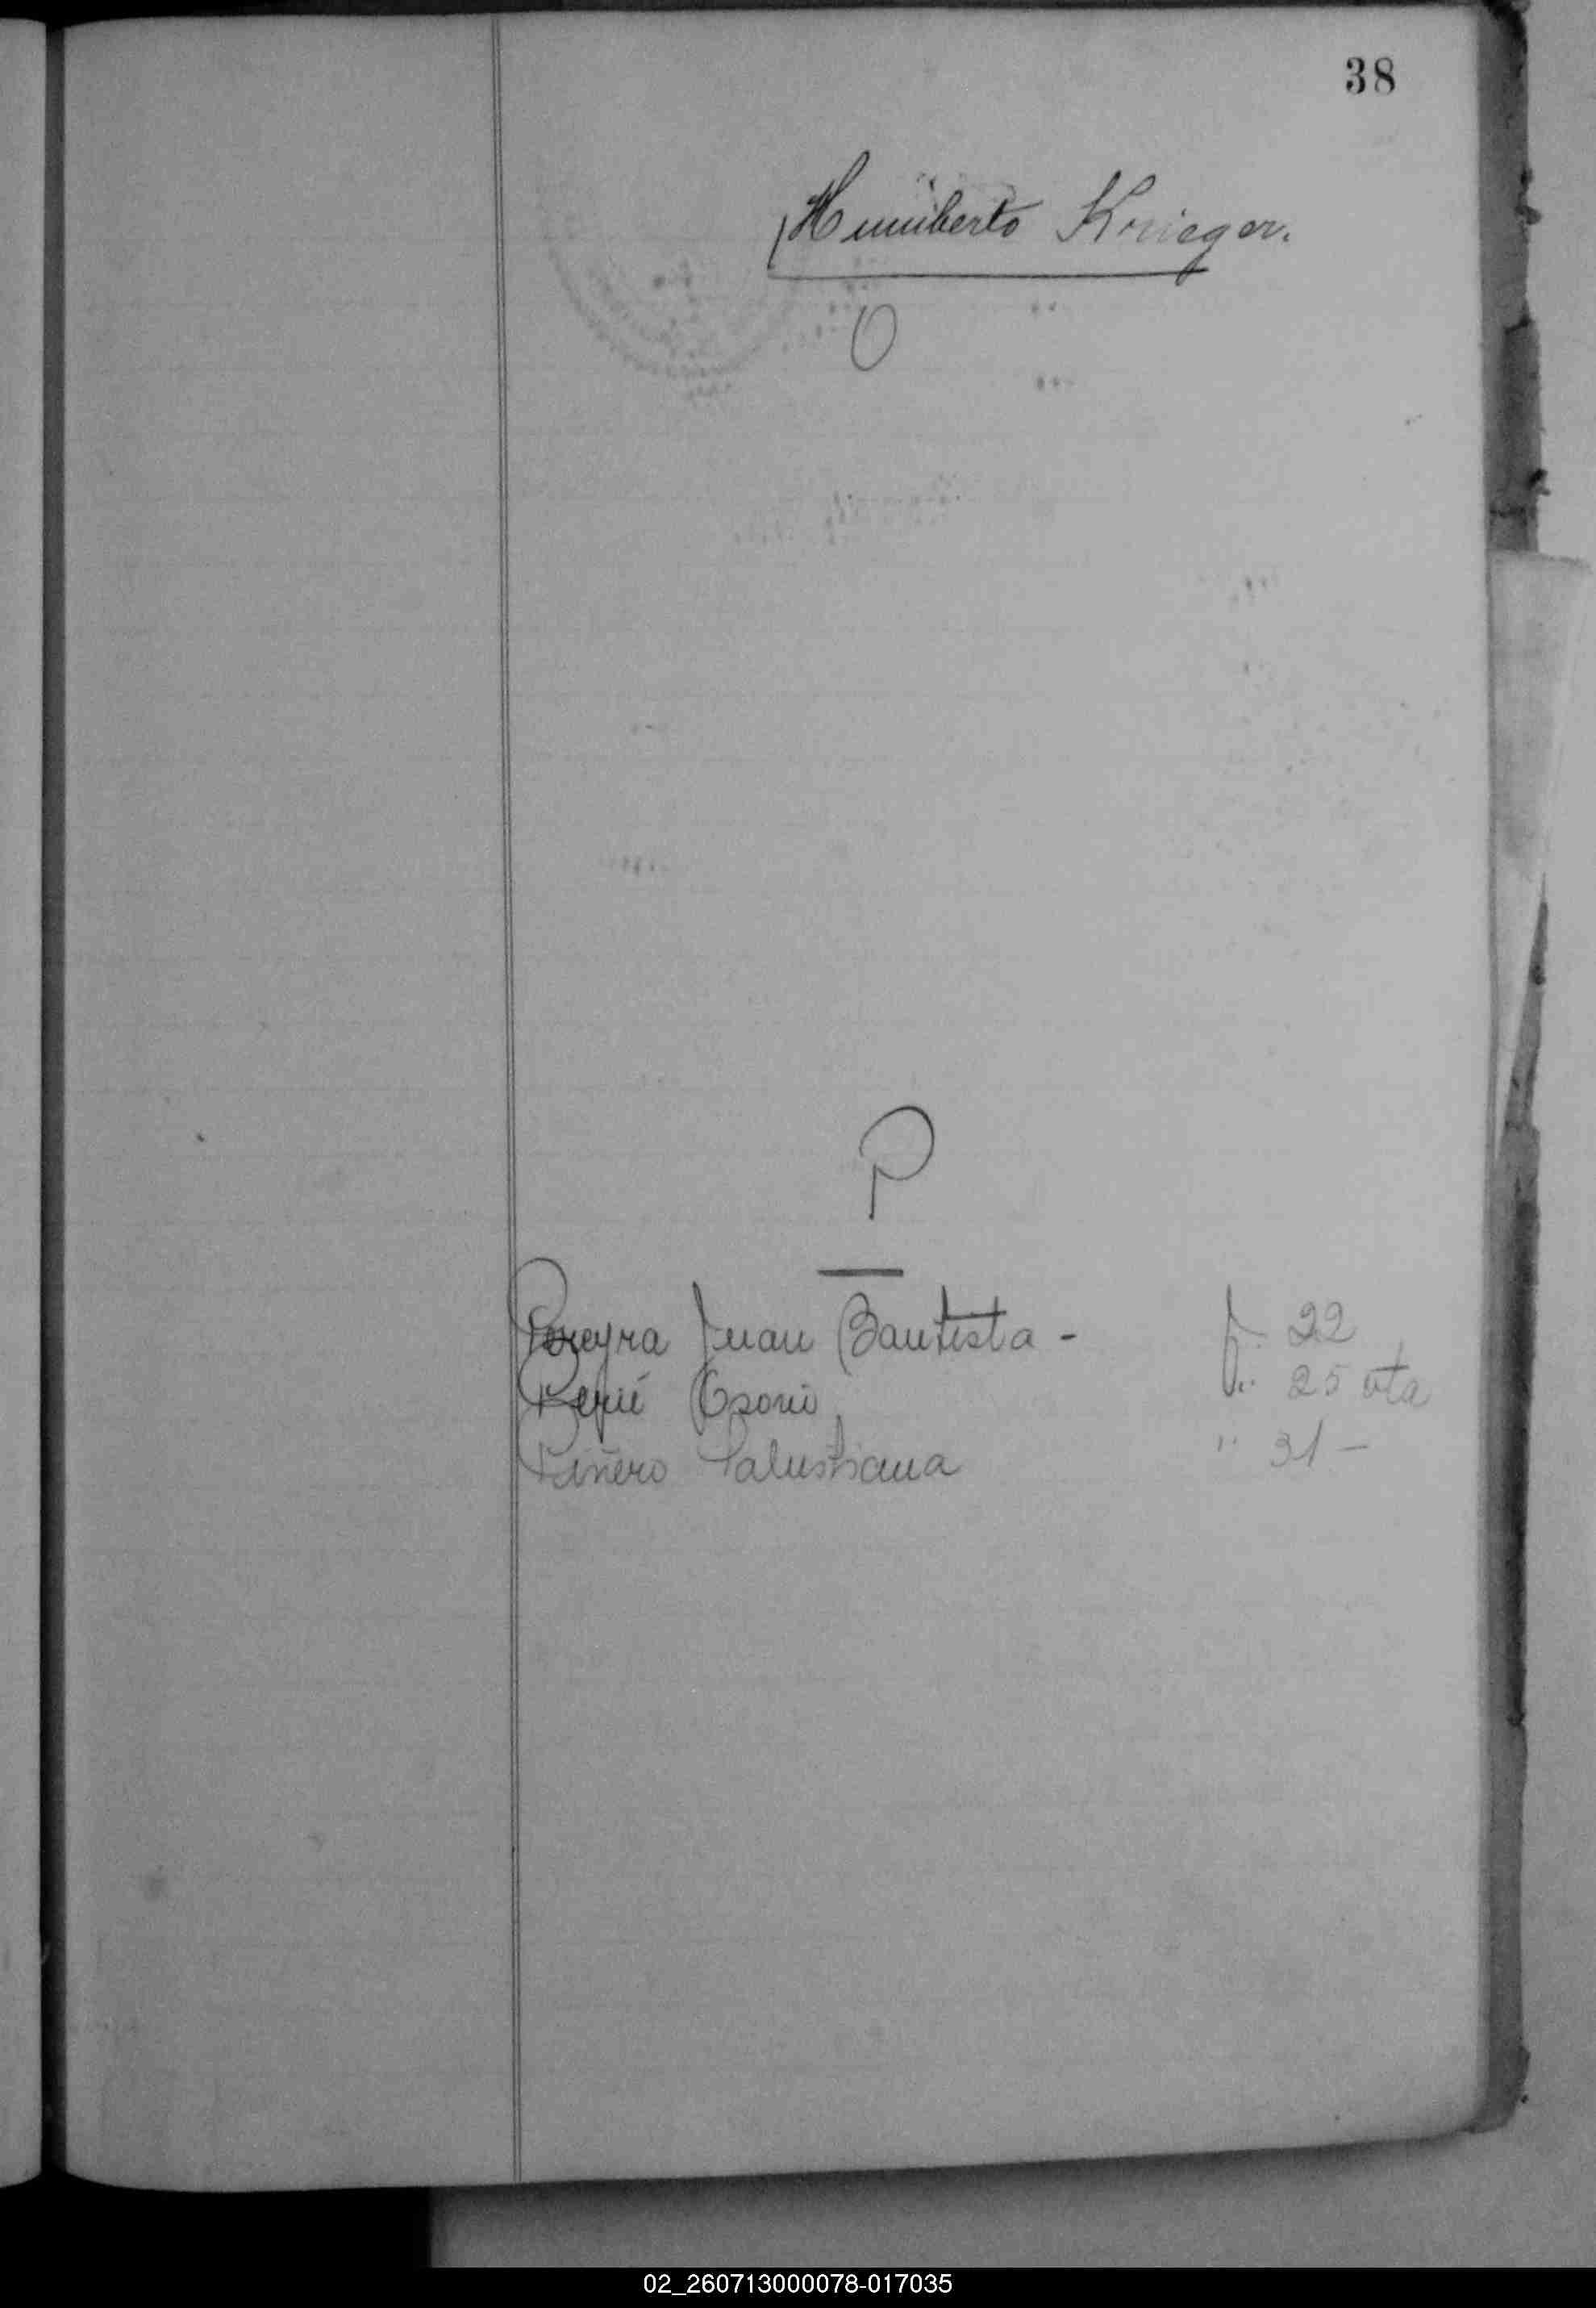 38
Humberto Krieger.
O
P
Pereyra Juan Bautista - f. 22
Osorio " 25 vta
Piñero Salustiana " 31 -
02_260713000078-017035